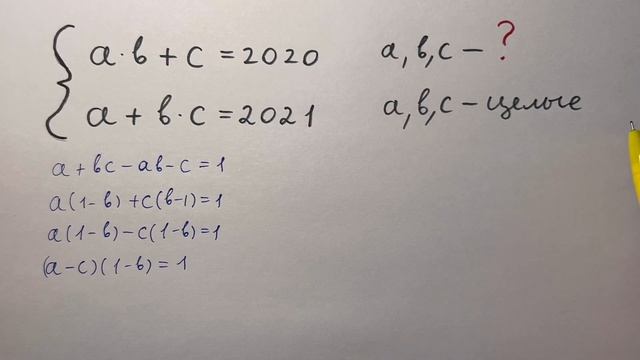 a·b + c = 2020 a, b, c – ?
a + b·c = 2021 a, b, c – целые
a + bc – ab – c = 1
a(1-b) + c(b-1) = 1
a(1-b) – c(1-b) = 1
(a-c)(1-b) = 1